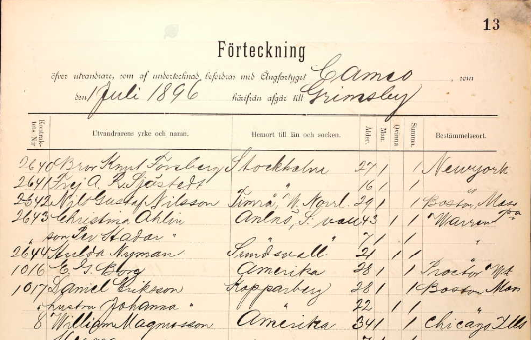 13
Förteckning
öfver utvandrare, som af undertecknad befordras med Ångfartyget Cameo, som
den 1 Juli 1896 härifrån afgår till Grimsby
Kontrakts N:r Utvandrarens yrke och namn. Hemort till län och socken. Ålder. Man. Qvinna Summa. Bestämmelseort.
2640 Bror Knut Forsberg Stockholm 24 1 1 Newyork
2641 Frej A. R. Sjöstedt " 16 1 1 "
2642 Gustaf Nilsson Timrå, W. Norrl. 29 1 1 Boston Mass
2643 Christina Ahlin 43 1 1 Warren Pa
" son Per " 7 1 1 "
2644 Hulda Nyman Sundsvall 21 1 1 "
1016 C. G. Borg Amerika 28 1 1 Proctor Vt
1017 Daniel Eriksson Kopparberg 28 1 1 Boston Mass
" hustru Johanna " " 22 1 1 "
8 William Magnusson Amerika 34 1 1 Chicago Ills